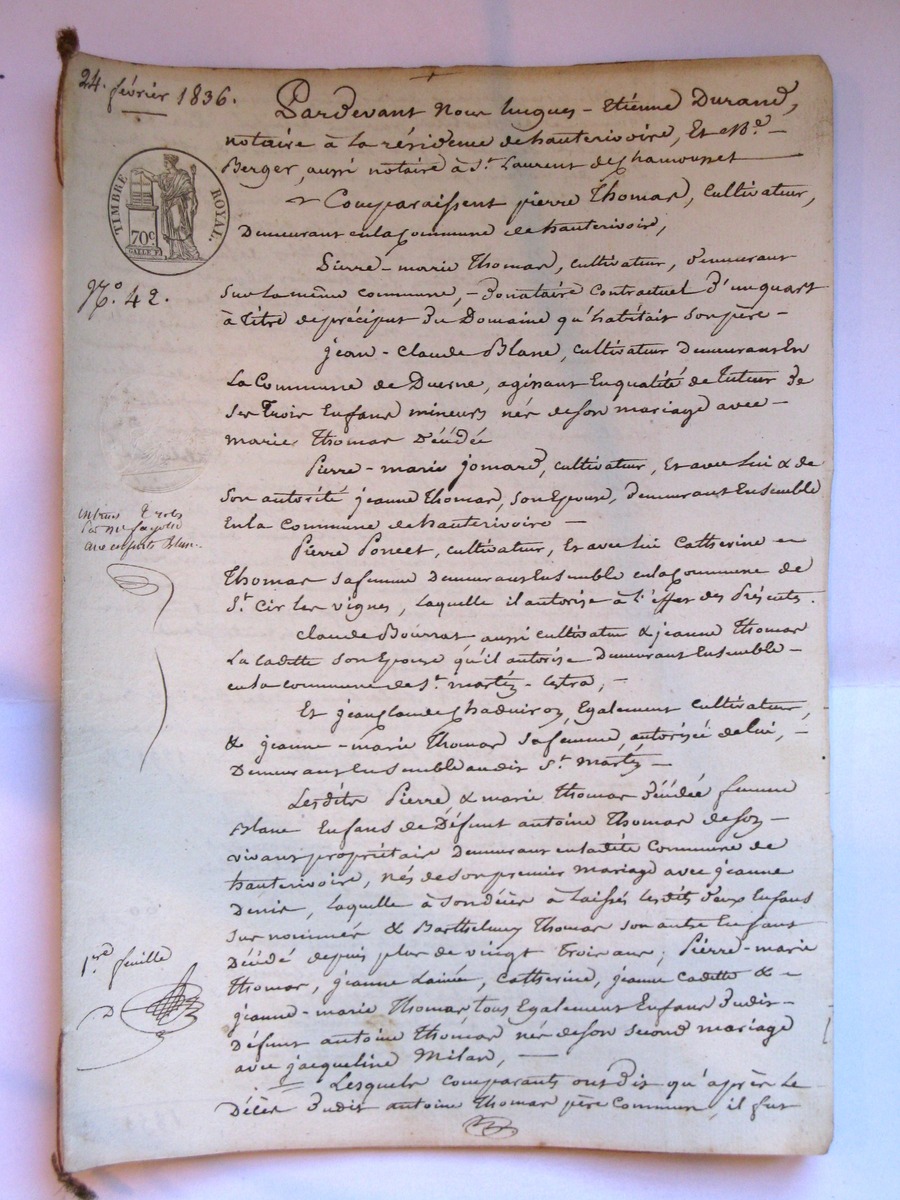 24. février 1836.
Pardevant Nous hugues - Etienne Durand,
notaire à la résidence de hauterivoire, Et Me. -
Berger, aussi notaire à St. Laurent de Chamousset
TIMBRE ROYAL.
70c
Comparaissent pierre Thomas, cultivateur,
Demeurant en la Commune de hauterivoire,
Pierre - marie Thomas, cultivateur, demeurant
No. 42.
sur la même commune, - Donataire contractuel d'un quart
à titre de préciput du Domaine qu'habitait son père -
jean - Claude Blanc, cultivateur demeurant En
La Commune de Duerne, agissant En qualité de Tuteur de
ses Trois Enfans mineurs nés de son mariage avec -
marie Thomas Décédée
Pierre - marie jomard, cultivateur, Et avec lui & de
son autorité jeanne Thomas, son Epouse, demeurant Ensemble
En la Commune de hauterivoire -
Blanc.
Pierre Poncet, cultivateur, Et avec lui Catherine
Thomas sa femme demeurant Ensemble en la Commune de
St. Cir les vignes, laquelle il autorise à l'effet des Présentes.
Claude Bournat aussi cultivateur & jeanne Thomas
La Cadette son Epouse qu'il autorise Demeurant Ensemble -
en la commune de St. martin - Lestra, -
Et jean Claude Chaduiron, Egalement cultivateur,
& jeanne - marie Thomas sa femme, autorisée de lui, -
Demeurant Ensemble audit St. martin -
Lesdits Pierre & marie Thomas décédée femme
Blanc Enfans de Défunt antoine Thomas de son -
vivant propriétaire demeurant en ladite Commune de
hauterivoire, nés de son premier mariage avec jeanne
Denis, laquelle à son décès à laissés lesdits deux Enfans
sus nommés & Barthelemy Thomas son autre Enfant
Décédé depuis plus de vingt Trois ans; Pierre - marie
1re feuille
Thomas, jeanne Lainée, Catherine, jeanne cadette &
jeanne - marie Thomas tous Egalement Enfans dudit -
Défunt antoine Thomas nés de son second mariage
avec jacqueline Milan, -
Lesquels comparants ont dit qu'après le
Décès dudit antoine Thomas père commun, il fut